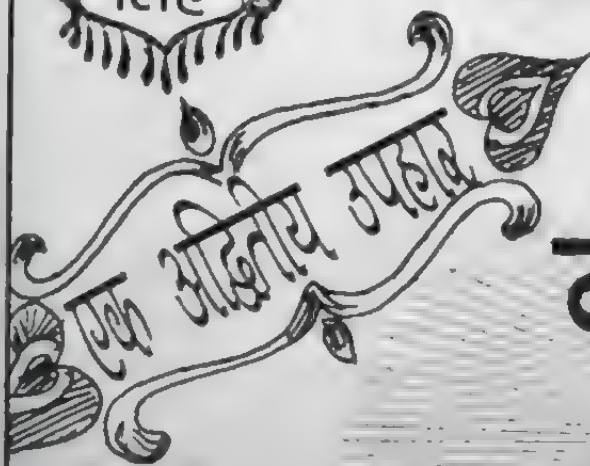 एक अद्वितीय उपहार